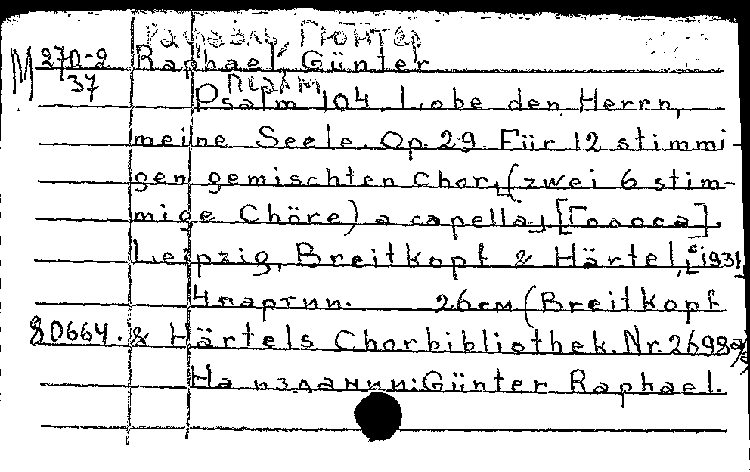 Рафаэль, Гюнтер
М 27П-2 Raphael, Günter
37 Псалм
Psalm 104. Lobe den Herrn,
meine Seele. Op. 29. Für 12 stimmi-
gen gemischten Chor, (zwei 6 stim-
mige Chöre) a capella, [Голоса].
Leipzig, Breitkopf & Härtel, [c1931]
4 партии. 26 см (Breitkopf
80664. & Härtels Chorbibliothek. Nr. 2698
На издании: Günter Raphael.